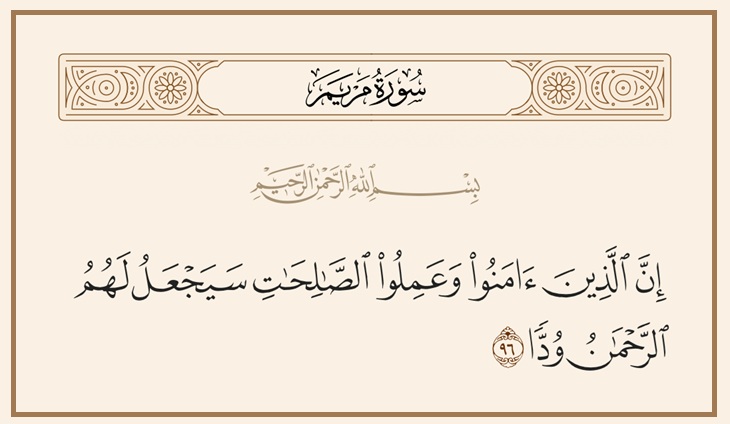 سُورَةُ مَرْيَمَ
بِسْمِ ٱللَّهِ ٱلرَّحْمَٰنِ ٱلرَّحِيمِ
إِنَّ ٱلَّذِينَ ءَامَنُوا۟ وَعَمِلُوا۟ ٱلصَّٰلِحَٰتِ سَيَجْعَلُ لَهُمُ
ٱلرَّحْمَٰنُ وُدًّا ٩٦